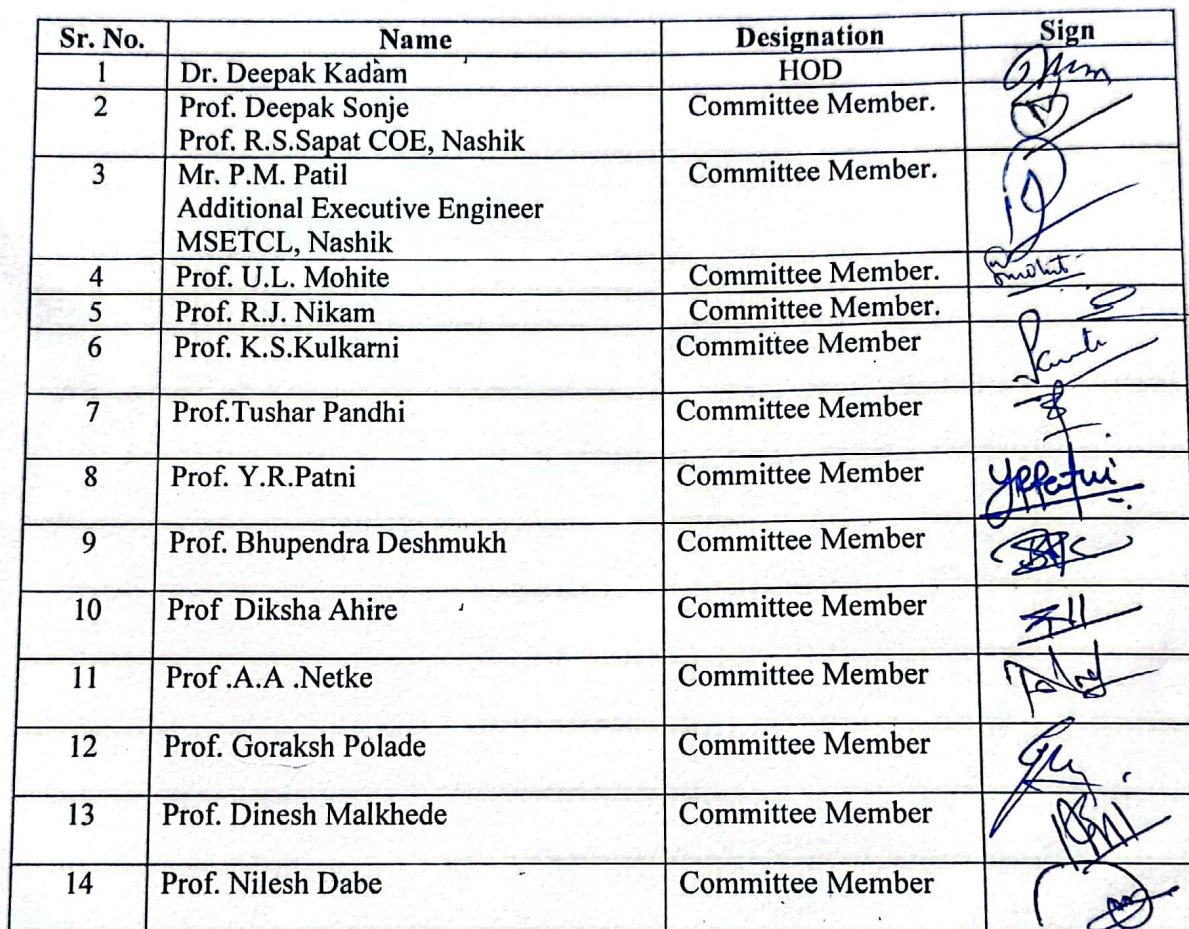 Sr. No. Name Designation Sign
1 Dr. Deepak Kadam HOD
2 Prof. Deepak Sonje Committee Member.
Prof. R.S.Sapat COE, Nashik
3 Mr. P.M. Patil Committee Member.
Additional Executive Engineer
MSETCL, Nashik
4 Prof. U.L. Mohite Committee Member.
5 Prof. R.J. Nikam Committee Member.
6 Prof. K.S.Kulkarni Committee Member
7 Prof.Tushar Pandhi Committee Member
8 Prof. Y.R.Patni Committee Member
9 Prof. Bhupendra Deshmukh Committee Member
10 Prof Diksha Ahire Committee Member
11 Prof .A.A .Netke Committee Member
12 Prof. Goraksh Polade Committee Member
13 Prof. Dinesh Malkhede Committee Member
14 Prof. Nilesh Dabe Committee Member